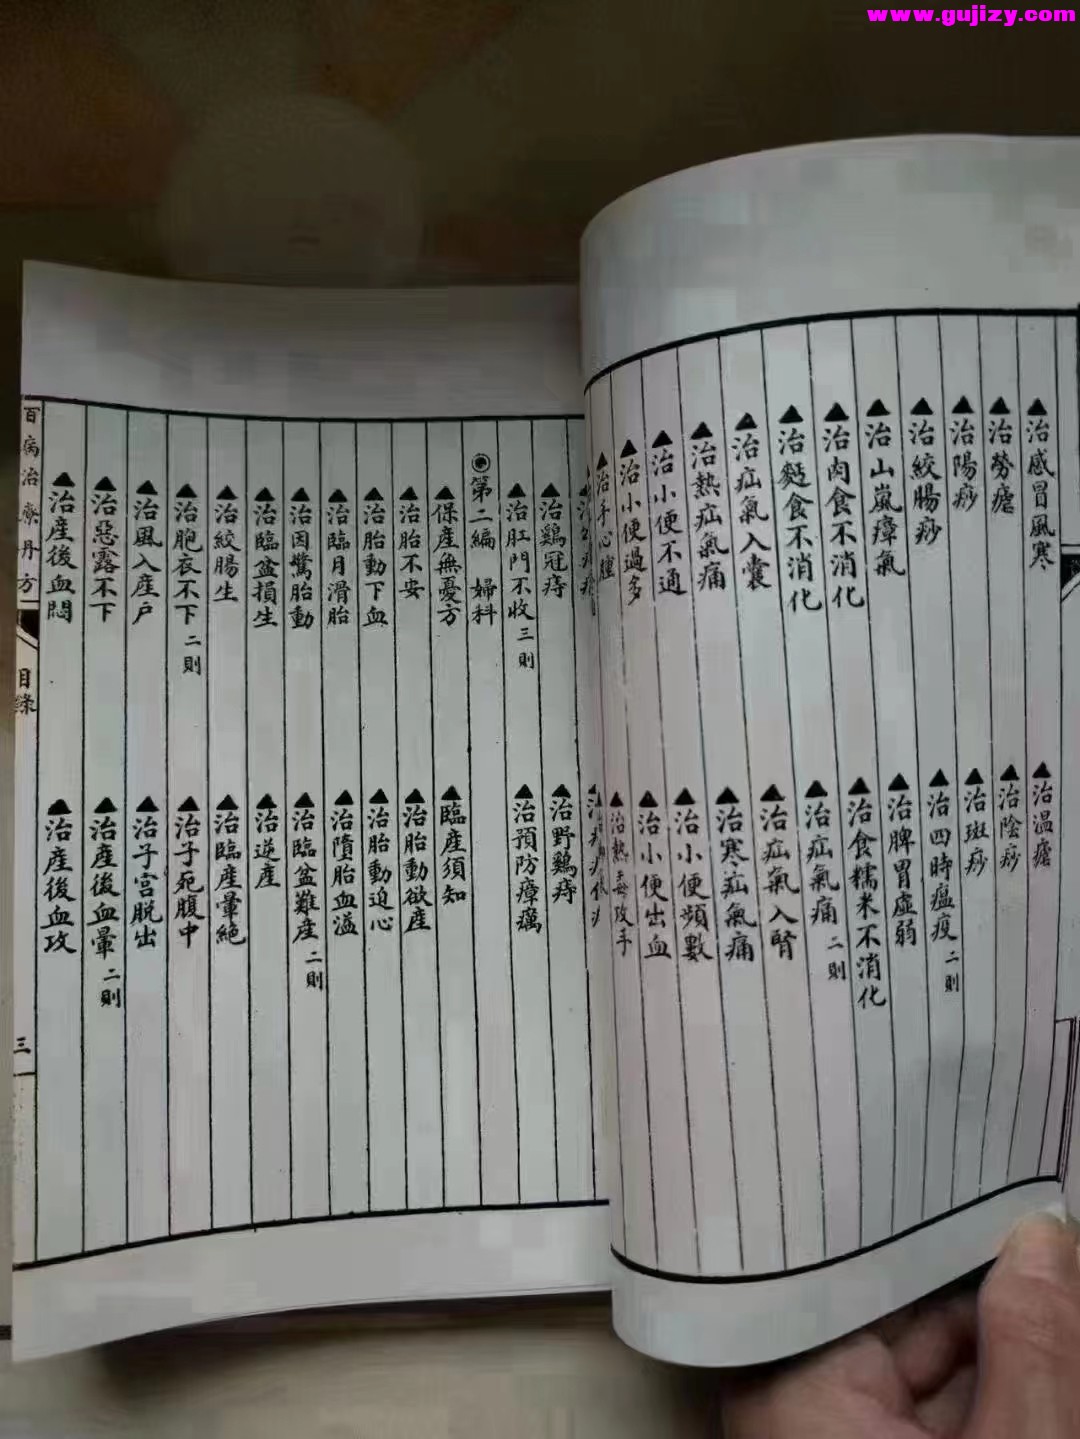 www.gujizy.com
▲治感冒風寒
▲治温瘧
▲治勞瘧
▲治陰痧
▲治陽痧
▲治斑痧
▲治絞腸痧
▲治四時瘟疫二則
▲治山嵐瘴氣
▲治脾胃虛弱
▲治肉食不消化
▲治食糯米不消化
▲治麪食不消化
▲治疝氣痛二則
▲治疝氣入囊
▲治疝氣入腎
▲治熱疝氣痛
▲治寒疝氣痛
▲治小便不通
▲治小便頻數
▲治小便過多
▲治小便出血
▲治手心腫
▲治熱毒攻手
▲治鷄冠痔
▲治野鷄痔
▲治肛門不收三則
▲治預防瘴癘
◉第二編 婦科
▲保産無憂方
▲臨産須知
▲治胎不安
▲治胎動欲産
▲治胎動下血
▲治胎動迫心
▲治臨月滑胎
▲治墮胎血溢
▲治因驚胎動
▲治臨盆難産二則
▲治臨盆損生
▲治逆産
▲治絞腸生
▲治臨産暈絕
▲治胞衣不下二則
▲治子死腹中
▲治風入産户
▲治子宮脱出
▲治惡露不下
▲治產後血暈二則
▲治産後血悶
▲治産後血攻
百病治療丹方
目錄
三